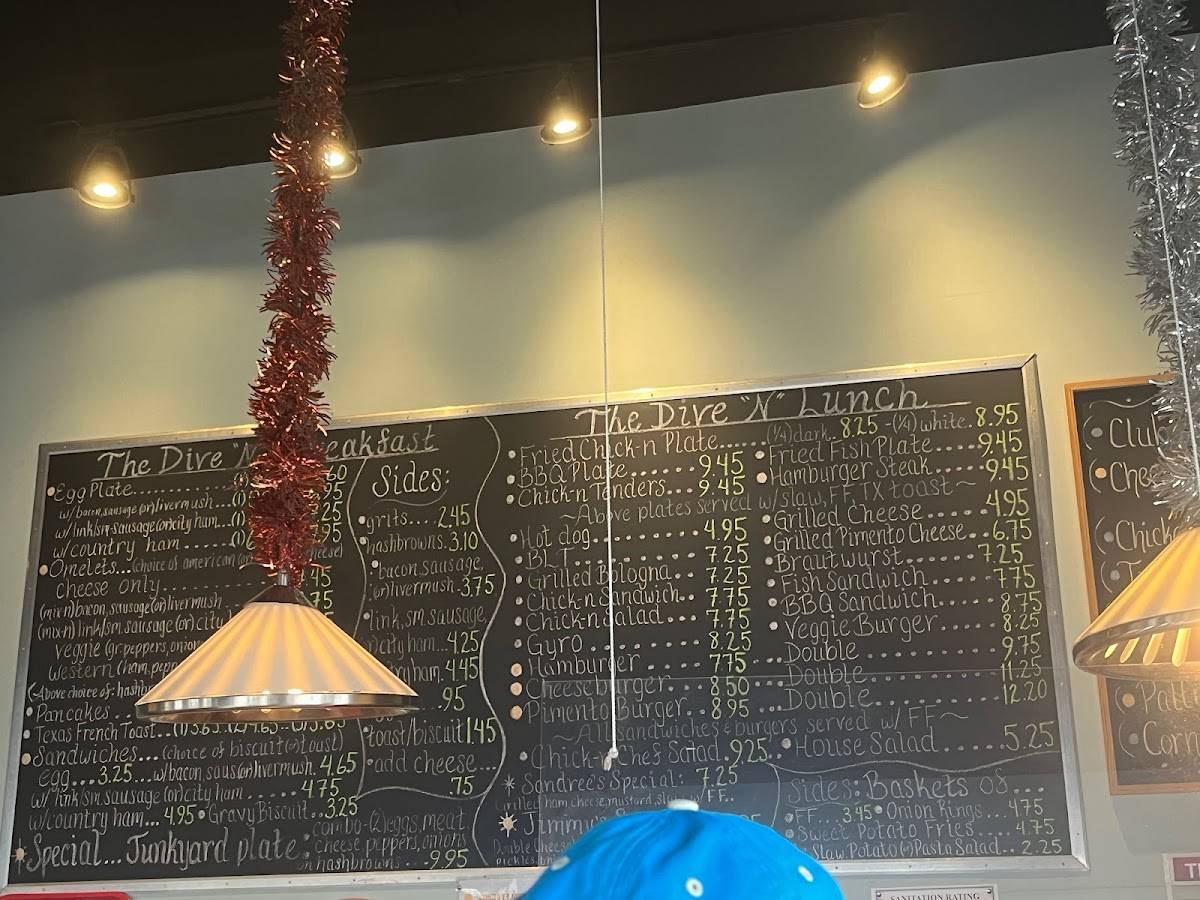 The Dive "N" Breakfast
Egg Plate
w/bacon, sausage (or) livermush
w/link/sm. sausage (or) city ham
w/country ham
Omelets... (choice of american (or)
cheese only
(mix-n) bacon, sausage (or) livermush
(mix-n) link/sm. sausage (or) city
Veggie (gr. peppers, onion
Western (ham, pepp
(Above choice of: hashbr
Pancakes
Texas French Toast
Sandwiches... (choice of biscuit (or) toast)
egg.... 3.25 ... w/bacon, saus. (or) livermush. 4.65
w/link/sm. sausage (or) city ham ........ 4.75
w/country ham... 4.95 Gravy Biscuit.. 3.25
Special... Junkyard plate: combo-(2) eggs, meat
cheese peppers, onions
on hashbrowns ... 9.95
Sides:
grits.... 2.45
hashbrowns. 3.10
bacon, sausage,
(or) livermush. 3.75
link, sm. sausage,
city ham... 4.25
ham. 4.45
.95
toast/biscuit 1.45
add cheese...
.75
The Dive "N" Lunch
Fried Chick-n Plate...... (¼) dark. 8.25 - (¼) white. 8.95
BBQ Plate ... 9.45
Fried Fish Plate.... 9.45
Chick-n Tenders... 9.45
Hamburger Steak... 9.45
~Above plates served w/slaw, FF, TX toast~
Hot dog......... 4.95
BLT............ 7.25
Grilled Bologna.. 7.25
Chick-n Sandwich.. 7.75
Chick-n Salad.... 7.75
Gyro ........ 8.25
Hamburger .... 7.75
Cheeseburger... 8.50
Pimento Burger.. 8.95
Grilled Cheese.... 4.95
Grilled Pimento Cheese.. 6.75
Bratwurst..... 7.25
Fish Sandwich..... 7.75
BBQ Sandwich..... 8.75
Veggie Burger..... 8.25
Double........ 9.75
Double........ 11.25
Double........ 12.20
~All sandwiches & burgers served w/ FF~
Chick-n Chef Salad. 9.25
House Salad........ 5.25
Sandree's Special: 7.25
Grilled ham, cheese, mustard, slaw w/ FF..
Jimmy's
Double Chee
pickles
Sides: Baskets of...
FF... 3.45 Onion Rings... 4.75
Sweet Potato Fries...... 4.75
Slaw, Potato (or) Pasta Salad... 2.25
Club
Chee
Chick
Patt
Corn
SANITATION RATING